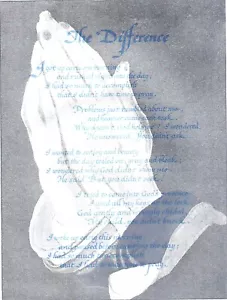 The Difference
I got up early one morning
and rushed right into the day;
I had so much to accomplish
that I didn't have time to pray.
Problems just tumbled about me
and heavier came each task.
Why doesn't God help me? I wondered.
He answered, You didn't ask.
I wanted to see joy and beauty
but the day toiled on, gray and bleak,
I wondered why God didn't show me
He said, But you didn't seek.
I tried to come into God's presence
I used all my keys at the lock.
God gently and lovingly chided,
My child, you didn't knock.
I woke up early this morning
and paused before entering the day;
I had so much to accomplish
that I had to take time to pray.